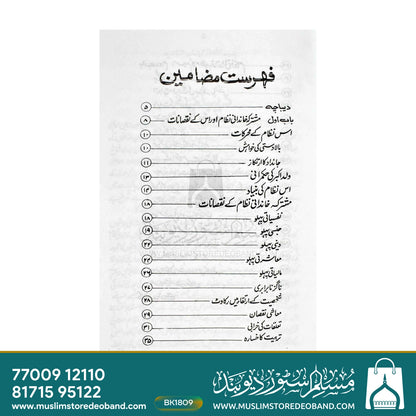 فہرست مضامین
دیباچہ ۵
باب اول مشترکہ خاندانی نظام اور اس کے نقصانات ۸
اس نظام کے محرکات ۱۰
بالادستی کی خواہش ۱۰
جائداد کا ارتکاز ۱۱
ولد اکبر کی حکمرانی ۱۳
اس نظام کی بنیاد ۱۴
مشترکہ خاندانی نظام کے نقصانات ۱۸
نفسیاتی پہلو ۱۸
جنسی پہلو ۱۹
دینی پہلو ۲۲
معاشرتی پہلو ۲۳
مالیاتی پہلو ۲۶
ناگزیر نابرابری ۲۷
شخصیت کے ارتقا میں رکاوٹ ۲۸
معاشی نقصان ۲۹
تعلقات کی خرابی ۳۱
تربیت کا خسارہ ۳۵
77009 12110
81715 95122
www.muslimstoredeoband.com
BK1809
مسلم سٹور دیوبند
WWW.MUSLIMSTOREDEOBAND.COM